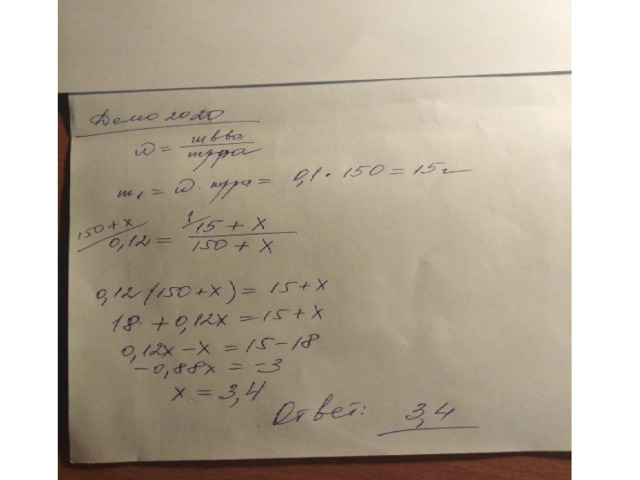 Демо 2020
ω = mв-ва / mр-ра
m₁ = ω · mр-ра = 0,1 · 150 = 15г
150+x / 0,12 = 1/ 15 + x / 150 + x
0,12 (150+x) = 15+x
18 + 0,12x = 15+x
0,12x - x = 15-18
-0,88x = -3
x = 3,4
Ответ: 3,4